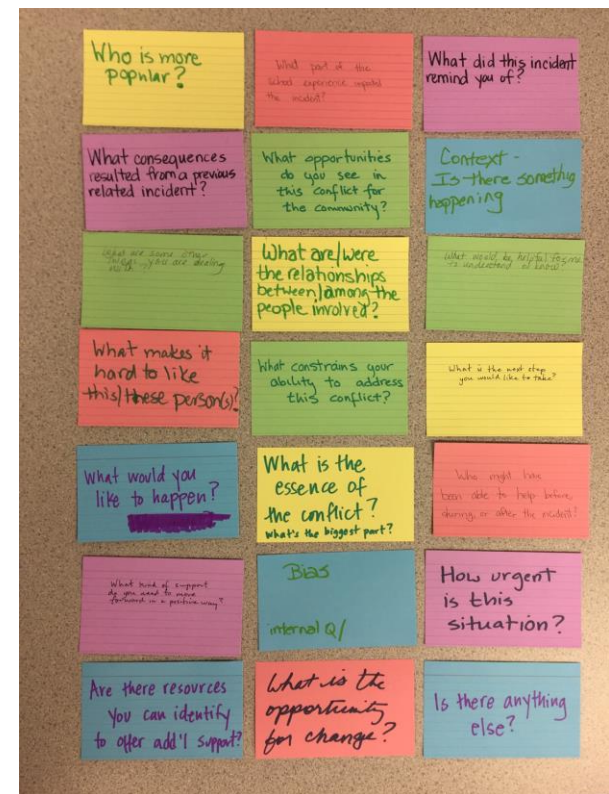 Who is more
popular?
What part of the
school experience impacted
the incident?
What did this incident
remind you of?
What consequences
resulted from a previous
related incident?
What opportunities
do you see in
this conflict for
the community?
Context -
Is there something
happening
What are some other
things you are dealing
with
What are/were
the relationships
between/among the
people involved?
What would be helpful for me
to understand or know?
What makes it
hard to like
this/these person(s)?
What constrains your
ability to address
this conflict?
What is the next step
you would like to take?
What would you
like to happen?
What is the
essence of
the conflict?
What's the biggest part?
Who might have
been able to help before,
during, or after the incident?
What kind of support
do you need to move
forward in a positive way?
Bias
internal Q/
How urgent
is this
situation?
Are there resources
you can identify
to offer add'l support?
What is the
opportunity
for change?
Is there anything
else?